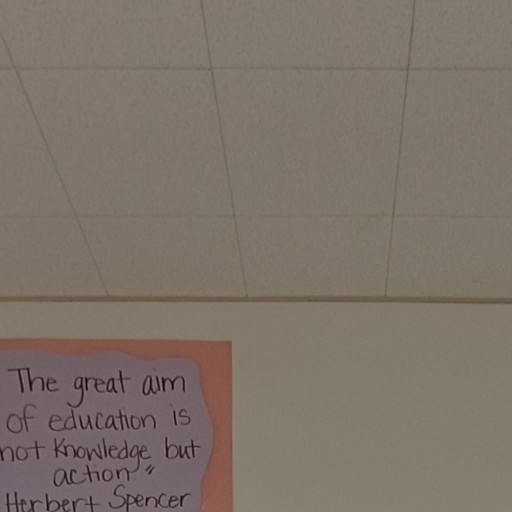 The great aim
of education is
not Knowledge but
action"
Herbert Spencer